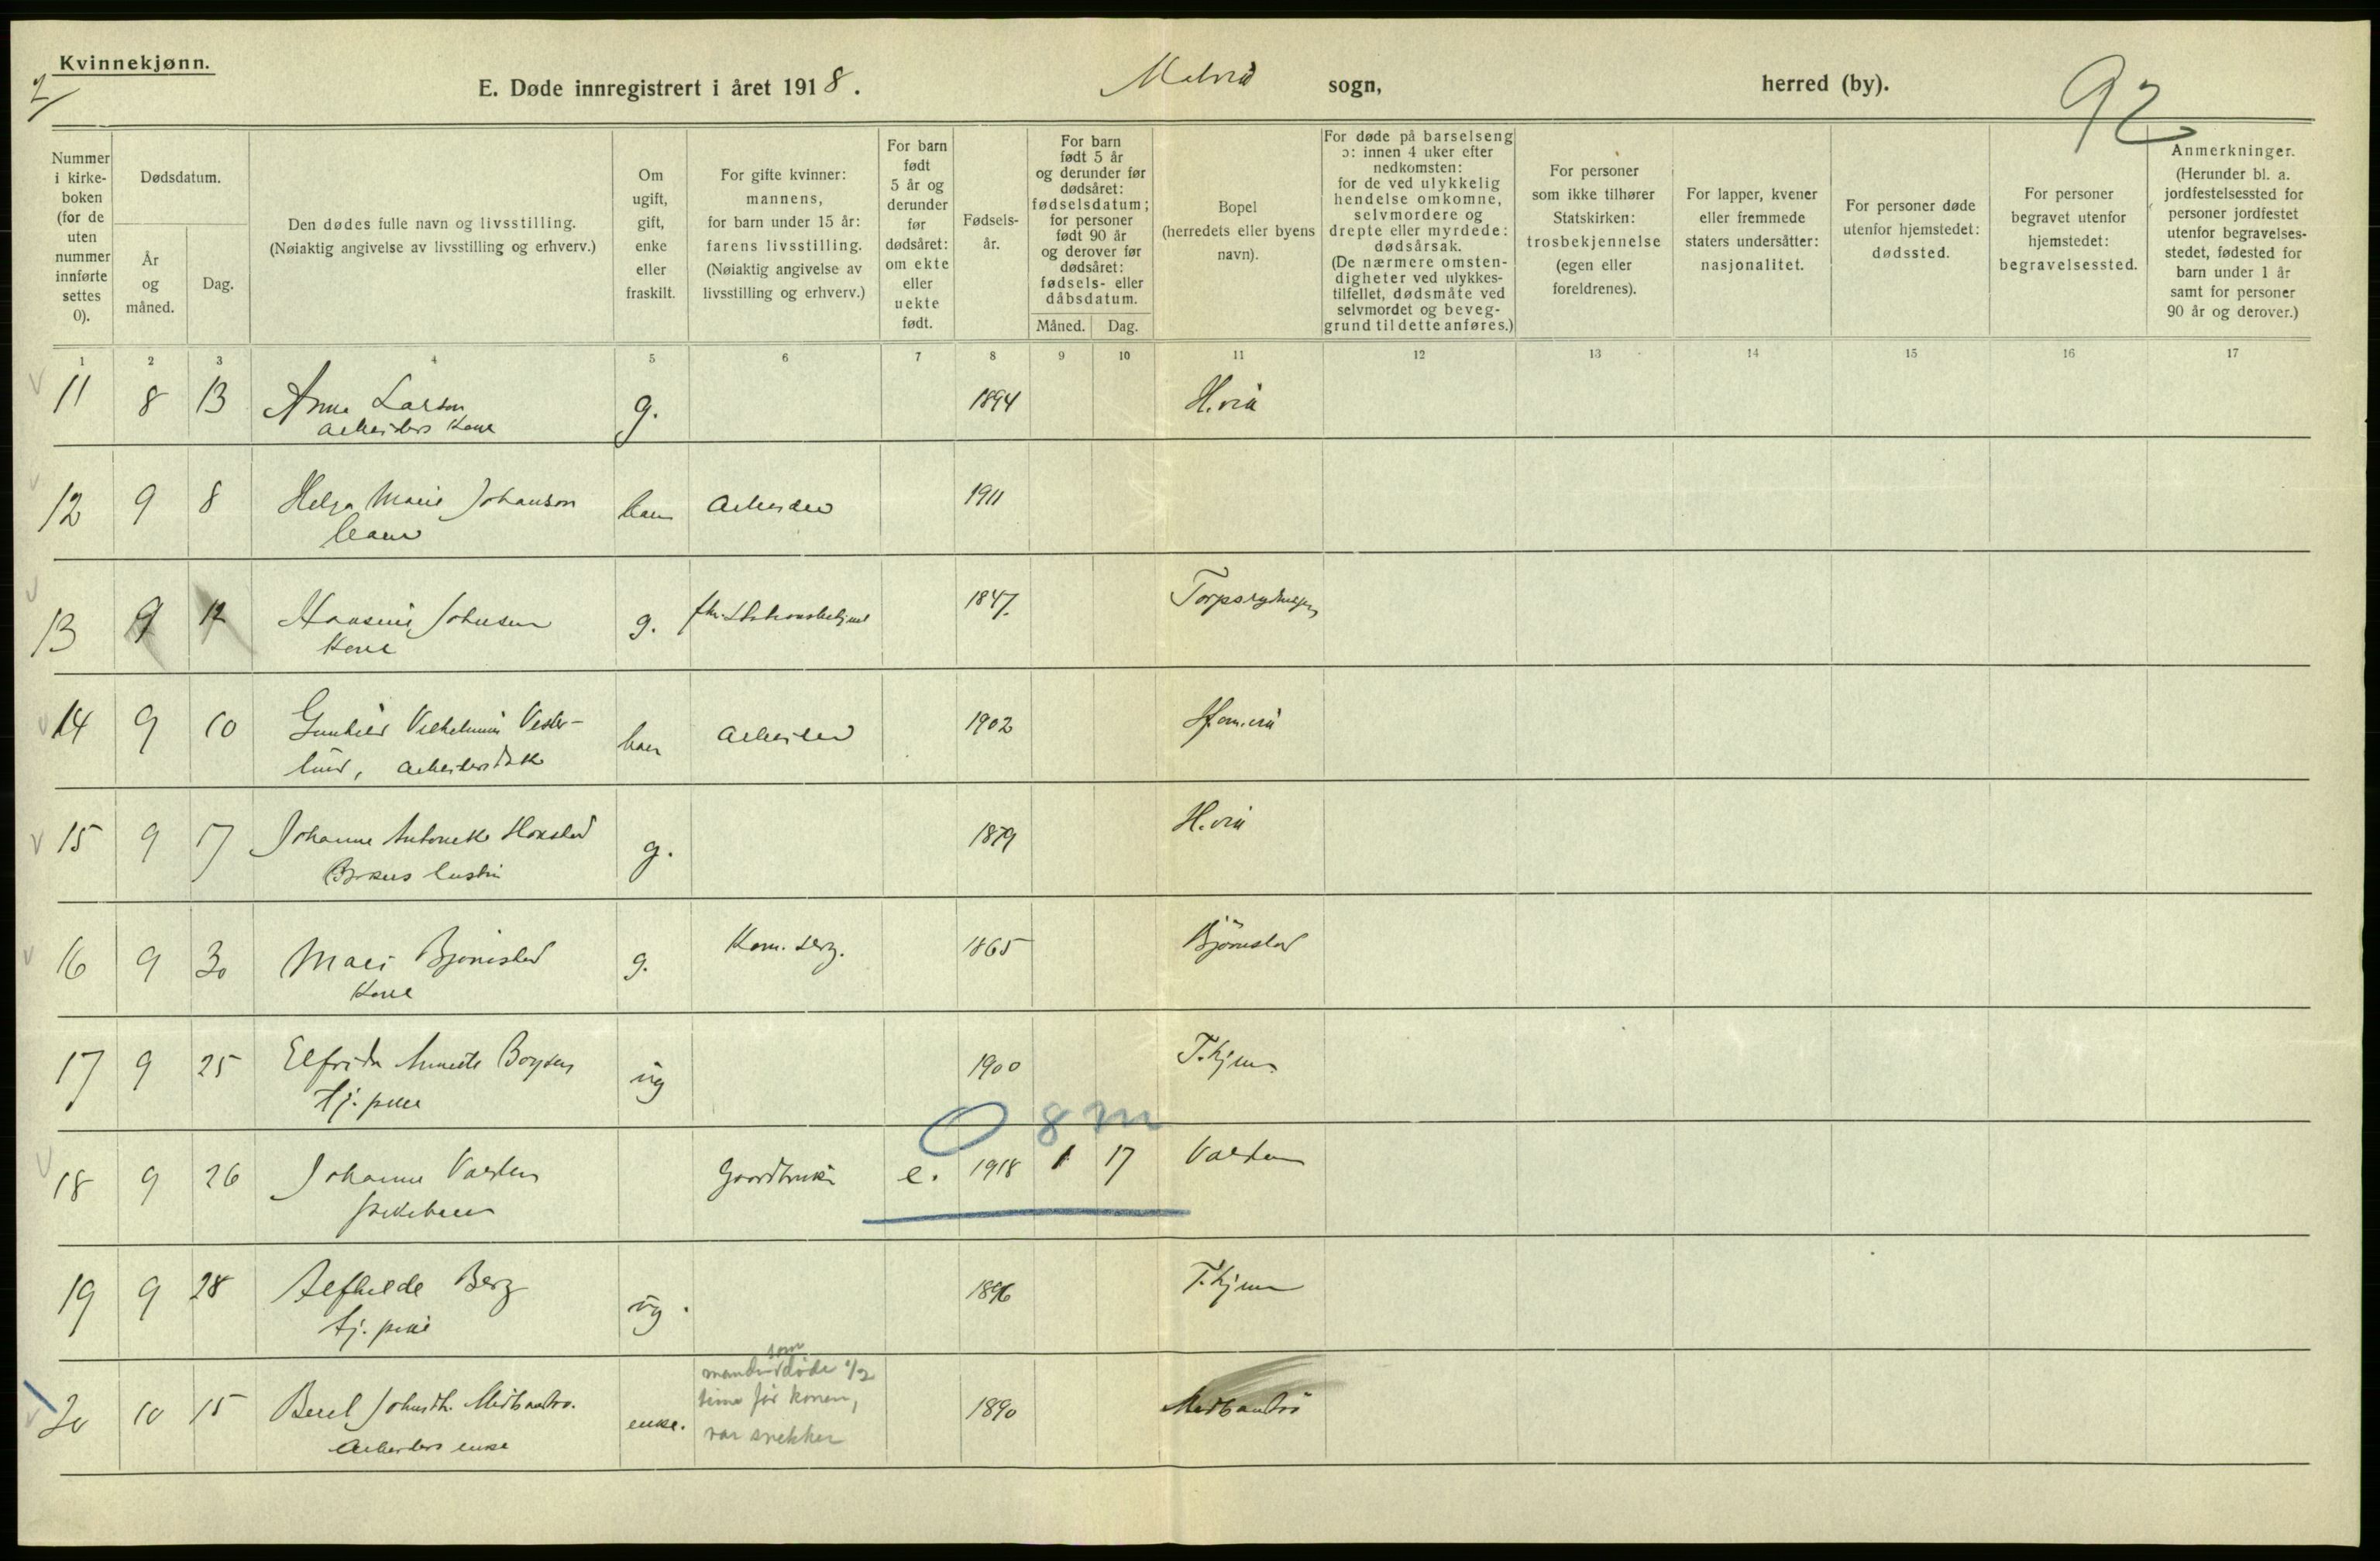 Kvinnekjønn.
2/
E. Døde innregistrert i året 1918. Malvik sogn, herred (by).
92
Nummer i kirke- boken (for de uten nummer innførte settes 0).
Dødsdatum.
År og måned.
Dag.
Den dødes fulle navn og livsstilling.
(Nøiaktig angivelse av livsstilling og erhverv.)
Om ugift, gift, enke eller fraskilt.
For gifte kvinner: mannens, for barn under 15 år: farens livsstilling. (Nøiaktig angivelse av livsstilling og erhverv.)
For barn født 5 år og derunder før dødsåret: om ekte eller uekte født.
Fødsels- år.
For barn født 5 år og derunder før dødsåret: fødselsdatum; for personer født 90 år og derover før dødsåret: fødsels- eller dåbsdatum.
Måned. Dag.
Bopel (herredets eller byens navn).
For døde på barselseng ɔ: innen 4 uker efter nedkomsten: for de ved ulykkelig hendelse omkomne, selvmordere og drepte eller myrdede: dødsårsak. (De nærmere omsten- digheter ved ulykkes- tilfellet, dødsmåte ved selvmordet og beveg- grund til dette anføres.)
For personer som ikke tilhører Statskirken: trosbekjennelse (egen eller foreldrenes).
For lapper, kvener eller fremmede staters undersåtter: nasjonalitet.
For personer døde utenfor hjemstedet: dødssted.
For personer begravet utenfor hjemstedet: begravelsessted.
Anmerkninger. (Herunder bl. a. jordfestelsessted for personer jordfestet utenfor begravelses- stedet, fødested for barn under 1 år samt for personer 90 år og derover.)
1 2 3 4 5 6 7 8 9 10 11 12 13 14 15 16 17
11 8 13 Anna Larsen g. 1894 H.vik
arbeiders kone
12 9 8 Helga Marie Johanson barn Arbeider 1911
barn
13 9 12 Hansine Johnsen g. 1847
kone
14 9 10 Gunhild Vilhelmine Vester- barn Arbeider 1902 Hom.vik
lund, arbeiders
15 9 17 Johanne g. 1879 H.vik
16 9 30 Bjørnstad g. Kom. serg. 1865 Bjørnstad
kone
17 9 25 Elfrida ug 1900 T.hjem
tj. pike
0 8 m
18 9 26 Johanne Gaardbruker e. 1918 1 17
pikebarn
19 9 28 Alfhilde Berg ug. 1896 T.hjem
tj. pike
20 10 15 enke. 1890
som
døde 1/2
time før konen,
var snekker
Arbeiders enke